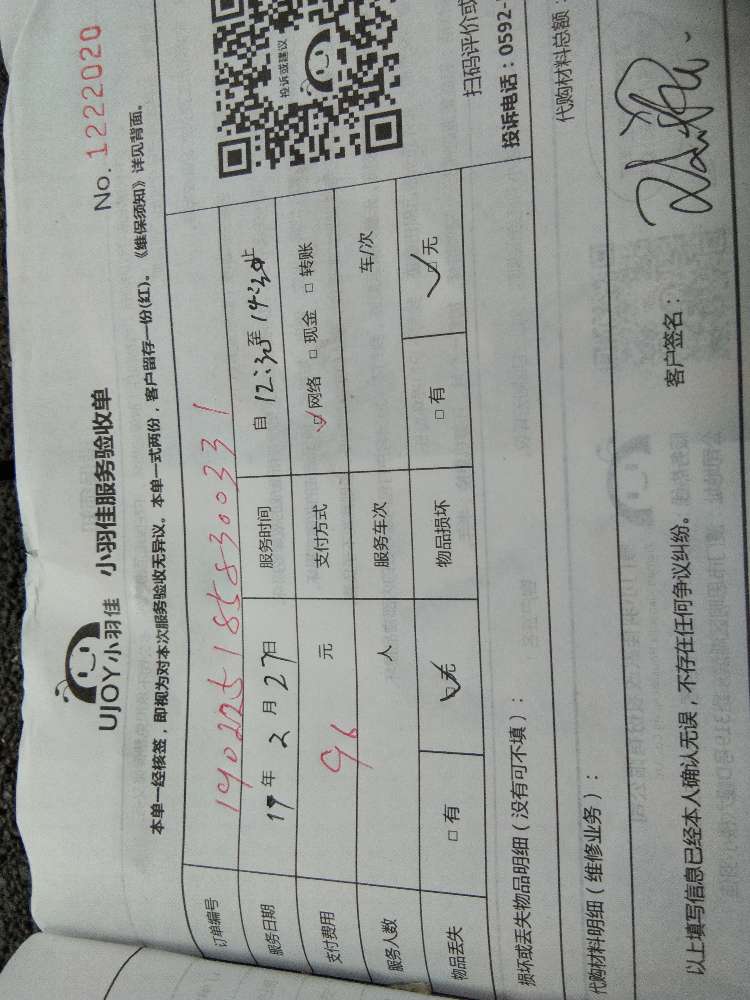 UJOY小羽佳 小羽佳服务验收单 No. 1222020
本单一经核签，即视为对本次服务验收无异议。本单一式两份，客户留存一份(红)。《维保须知》详见背面。
订单编号 190225185830033 1
服务日期 19年 2 月 27日 服务时间 自 12:30至 14:30止
支付费用 96 元 支付方式 ☑网络 □ 现金 □ 转账
服务人数 人 服务车次 车/次
物品丢失 □ 有 ☑无 物品损坏 □ 有 ☑无
投诉或建议
扫码评价或
投诉电话：0592-
损坏或丢失物品明细（没有可不填）：
代购材料明细（维修业务）： 代购材料总额：
以上填写信息已经本人确认无误，不存在任何争议纠纷。 客户签名：